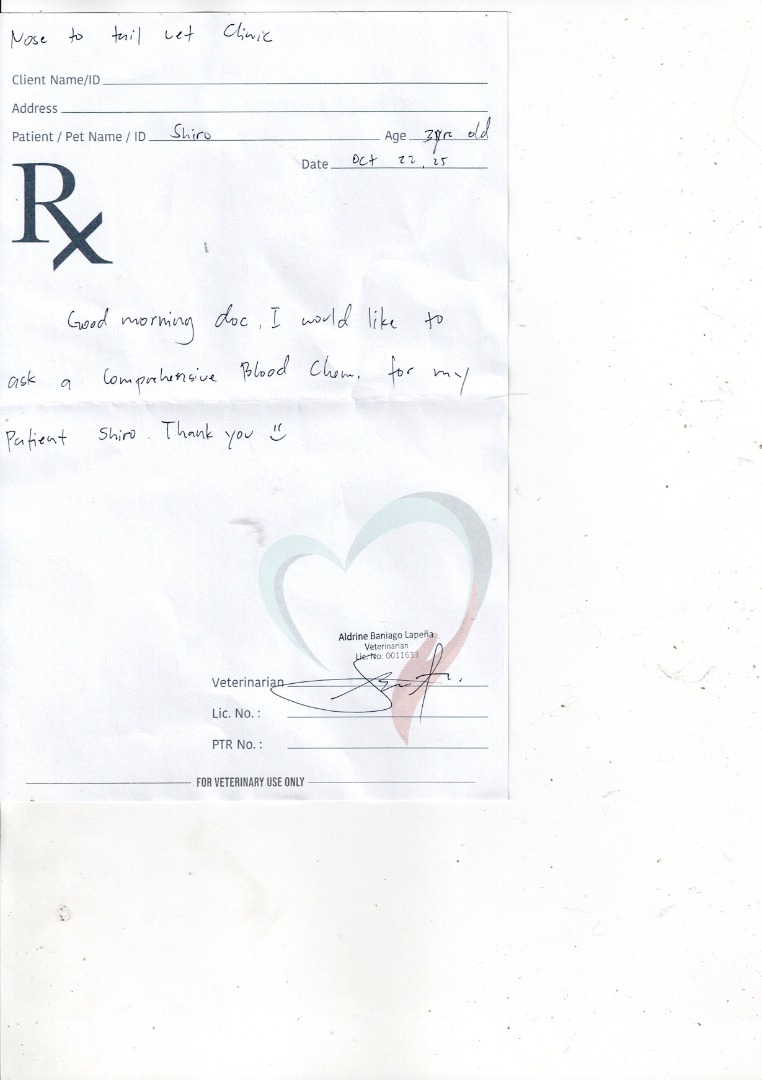 Nose to tail vet Clinic
Client Name/ID
Address
Patient / Pet Name / ID Shiro Age 3yrs old
Date Oct 22, 25
Rx
Good morning doc, I would like to
ask a Comprehensive Blood Chem. for my
Patient Shiro. Thank you
Aldrine Baniago Lapeña
Veterinarian
Lic. No: 0011633
Veterinarian
Lic. No. :
PTR No. :
FOR VETERINARY USE ONLY